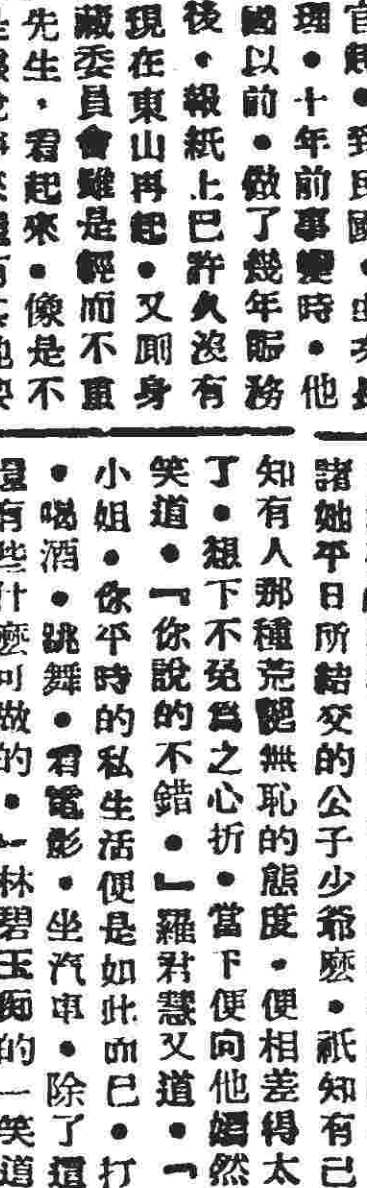 理●十年前事變時●他
國以前●做了幾年賑務
後●報紙上已許久沒有
現在東山再起●又廁身
藏委員會雖是輕而不重
先生●看起來●像是不
諸她平日所結交的公子少爺麼●祇知有己
知有人那種荒謬無恥的態度●便相差得太
了●想下不免爲之心折●當下便向他嫣然
笑道●『你說的不錯●』羅君慧又道●『
小姐●你平時的私生活便是如此而已●打
●喝酒●跳舞●看電影●坐汽車●除了這
還有些什麼可做的●』林碧玉痴的一笑道